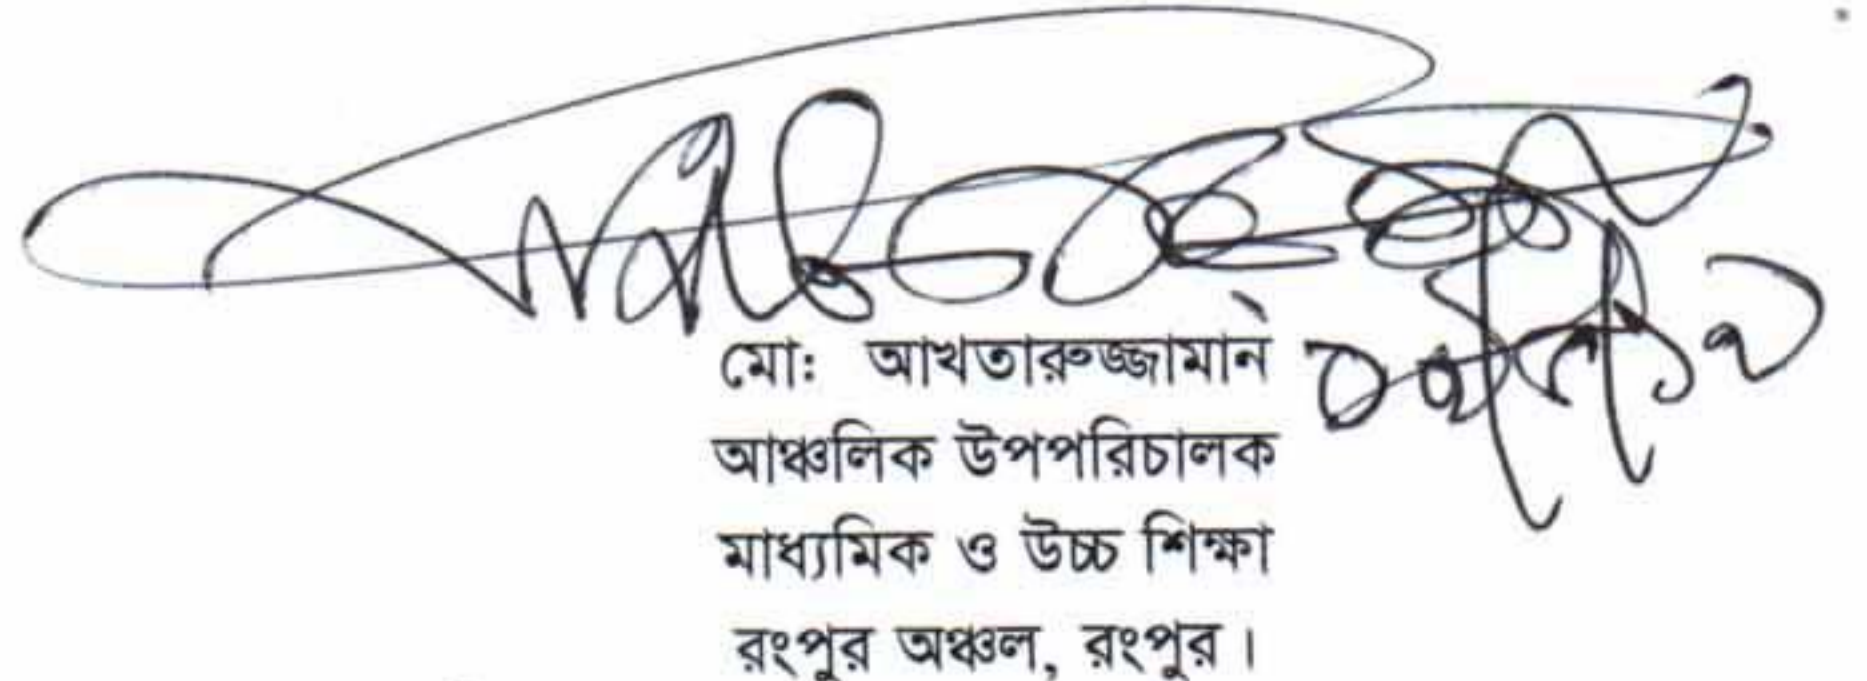 মো: আখতারুজ্জামান
আঞ্চলিক উপপরিচালক
মাধ্যমিক ও উচ্চ শিক্ষা
রংপুর অঞ্চল, রংপুর।